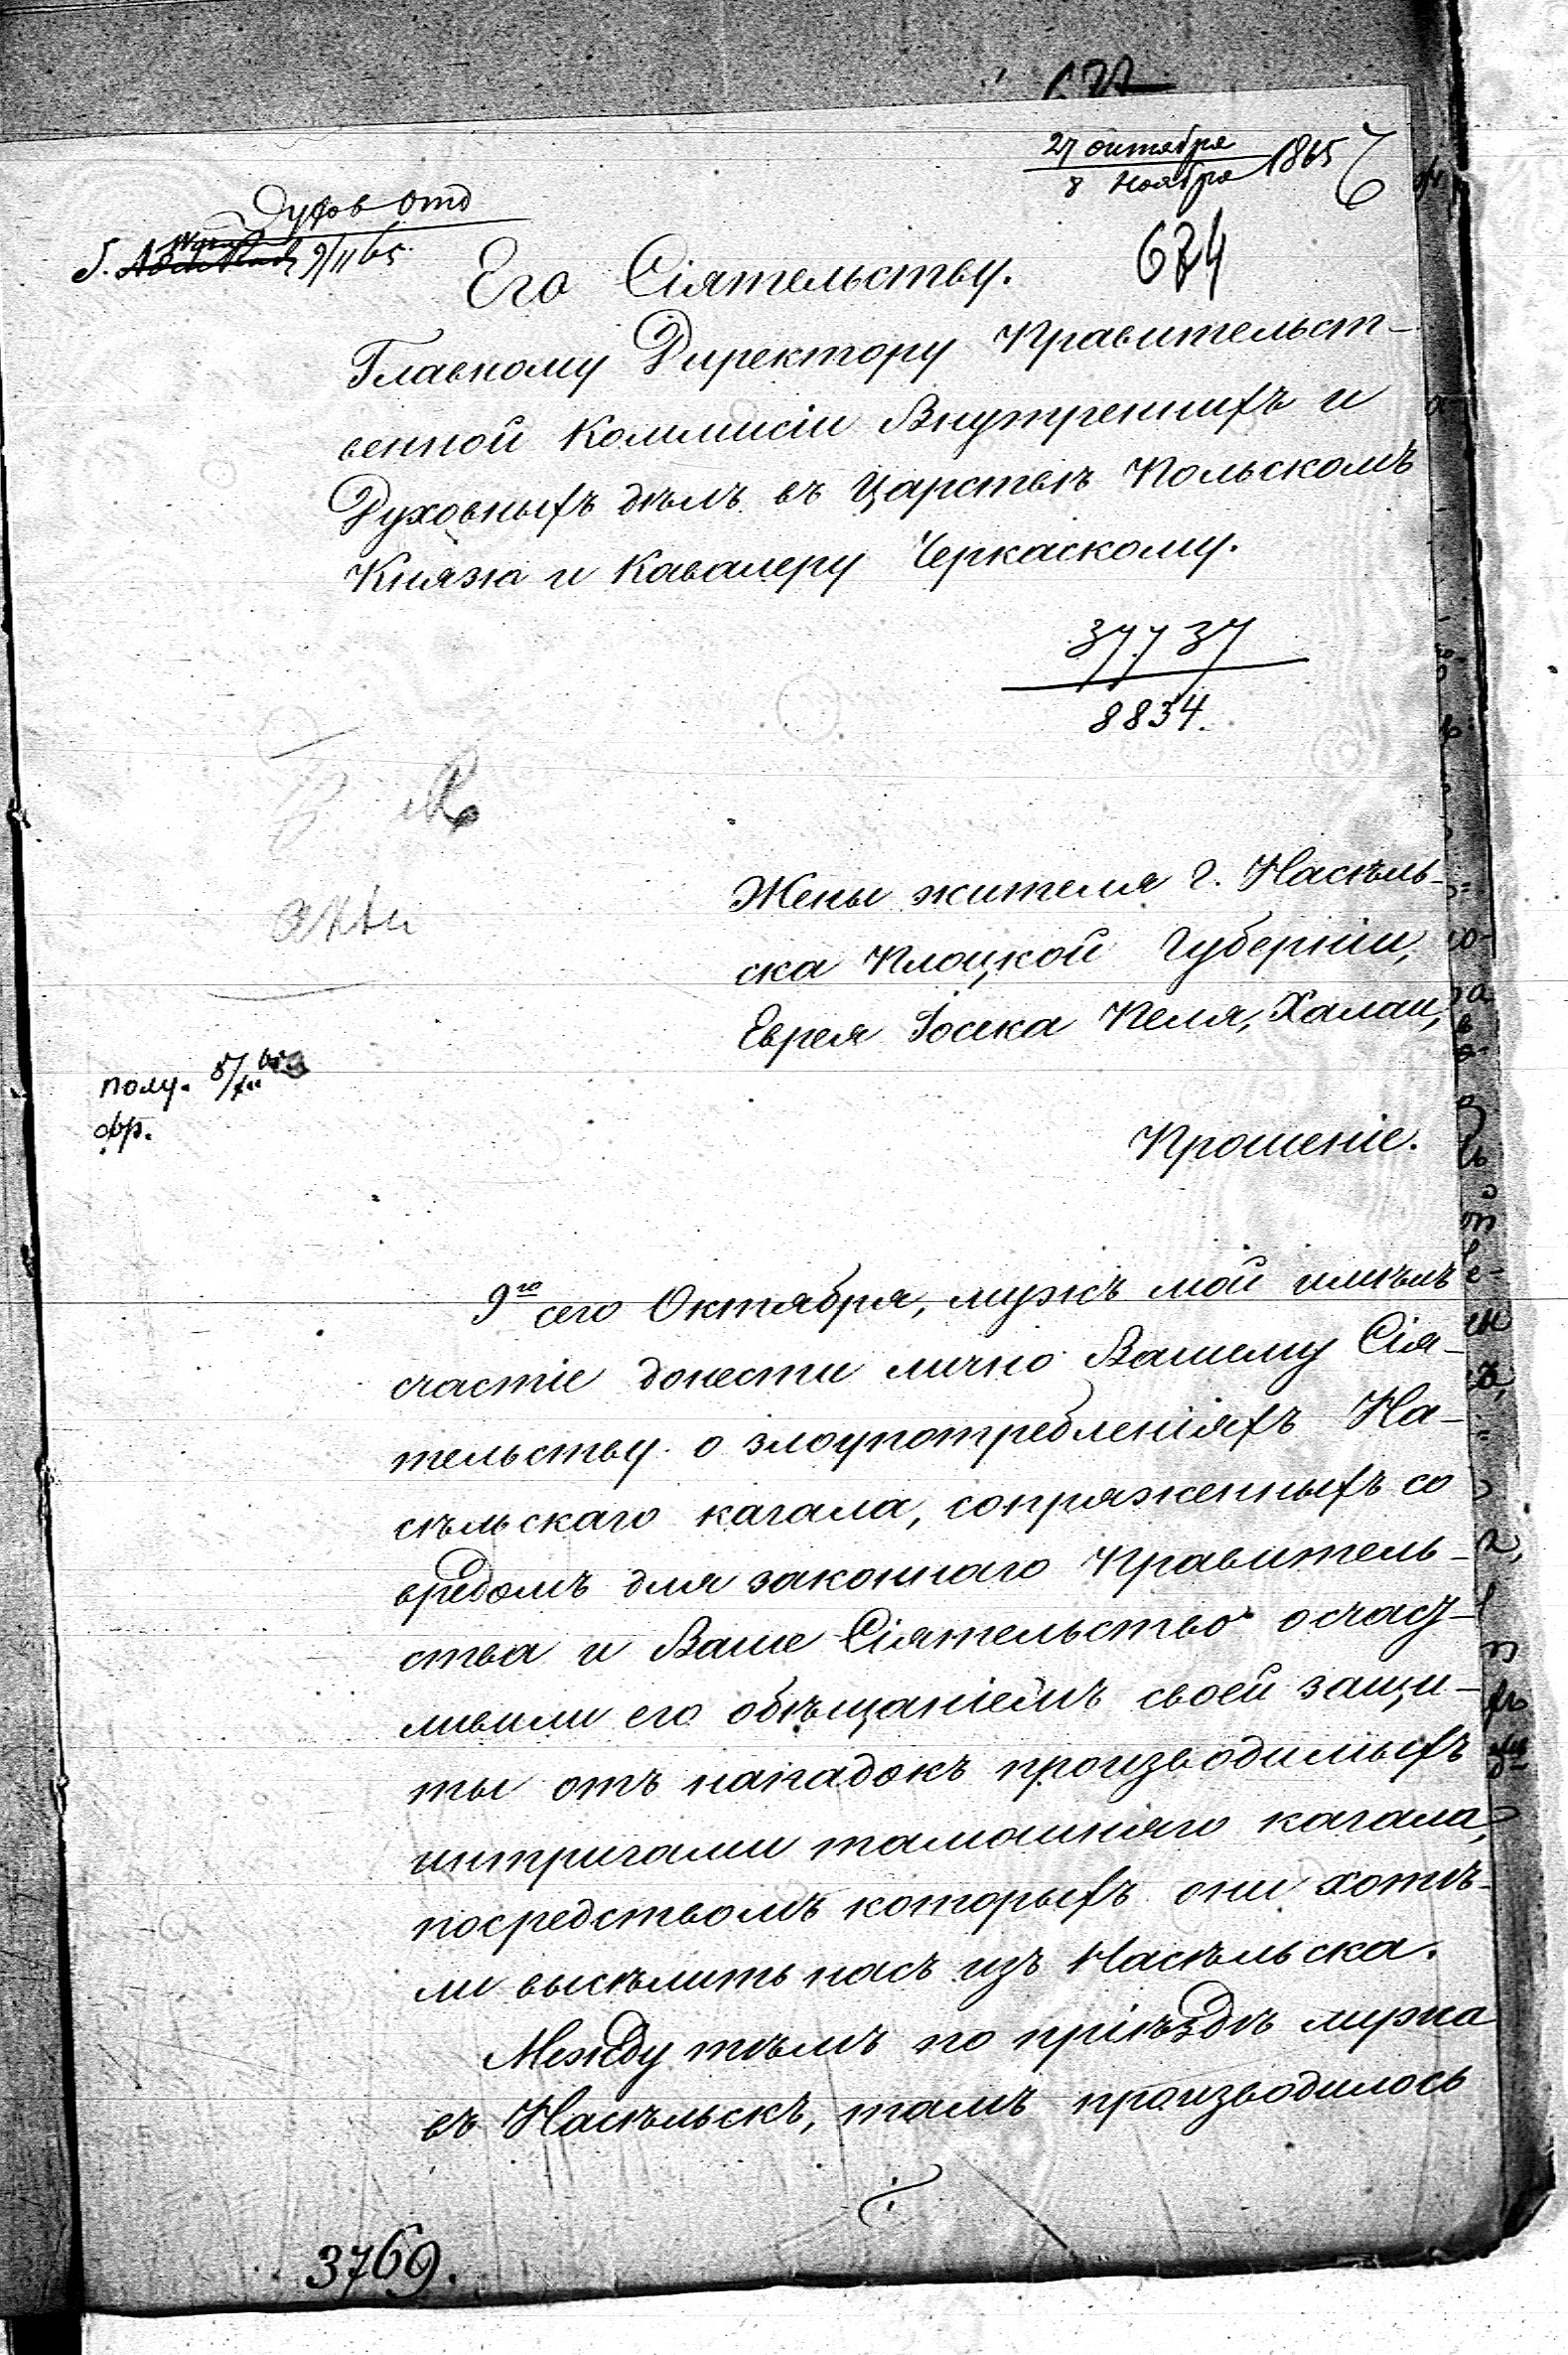 27 октября
8 Ноября 1865
Духов Отд
9/11 65.
674
Его Сіятельству.
Главному Директору Правительст-
венной Коммисіи Внутреннихъ и
Духовныхъ дѣлъ въ Царствѣ Польскомъ
Князю и Кавалеру Черкаскому.
37737
8834.
Жены жителя г. Насѣль-
ска Плоцкой Губерніи,
Еврея Іоска Пеля, Халаи,
полу.
Прошеніе.
9го сего Октября, мужъ мой имѣлъ
счастіе донести лично Вашему Сія-
тельству о злоупотребленіяхъ На-
сѣльскаго кагала, сопряженныхъ со
вредомъ для законнаго Правитель-
ства и Ваше Сіятельство осчаст-
ливили его обѣщаніемъ своей защи-
ты отъ нападокъ производимыхъ
интригами тамошняго кагала,
посредствомъ которыхъ они хотѣ-
ли высѣлить насъ изъ Насѣльска.
Между тѣмъ по пріѣздѣ мужа
въ Насѣльскъ, тамъ производилось
3769.